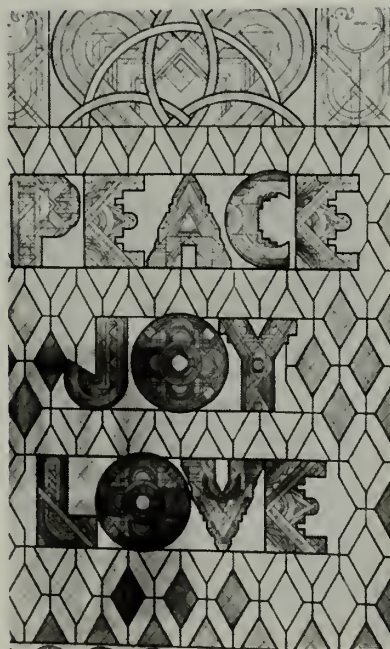 PEACE
JOY
LOVE